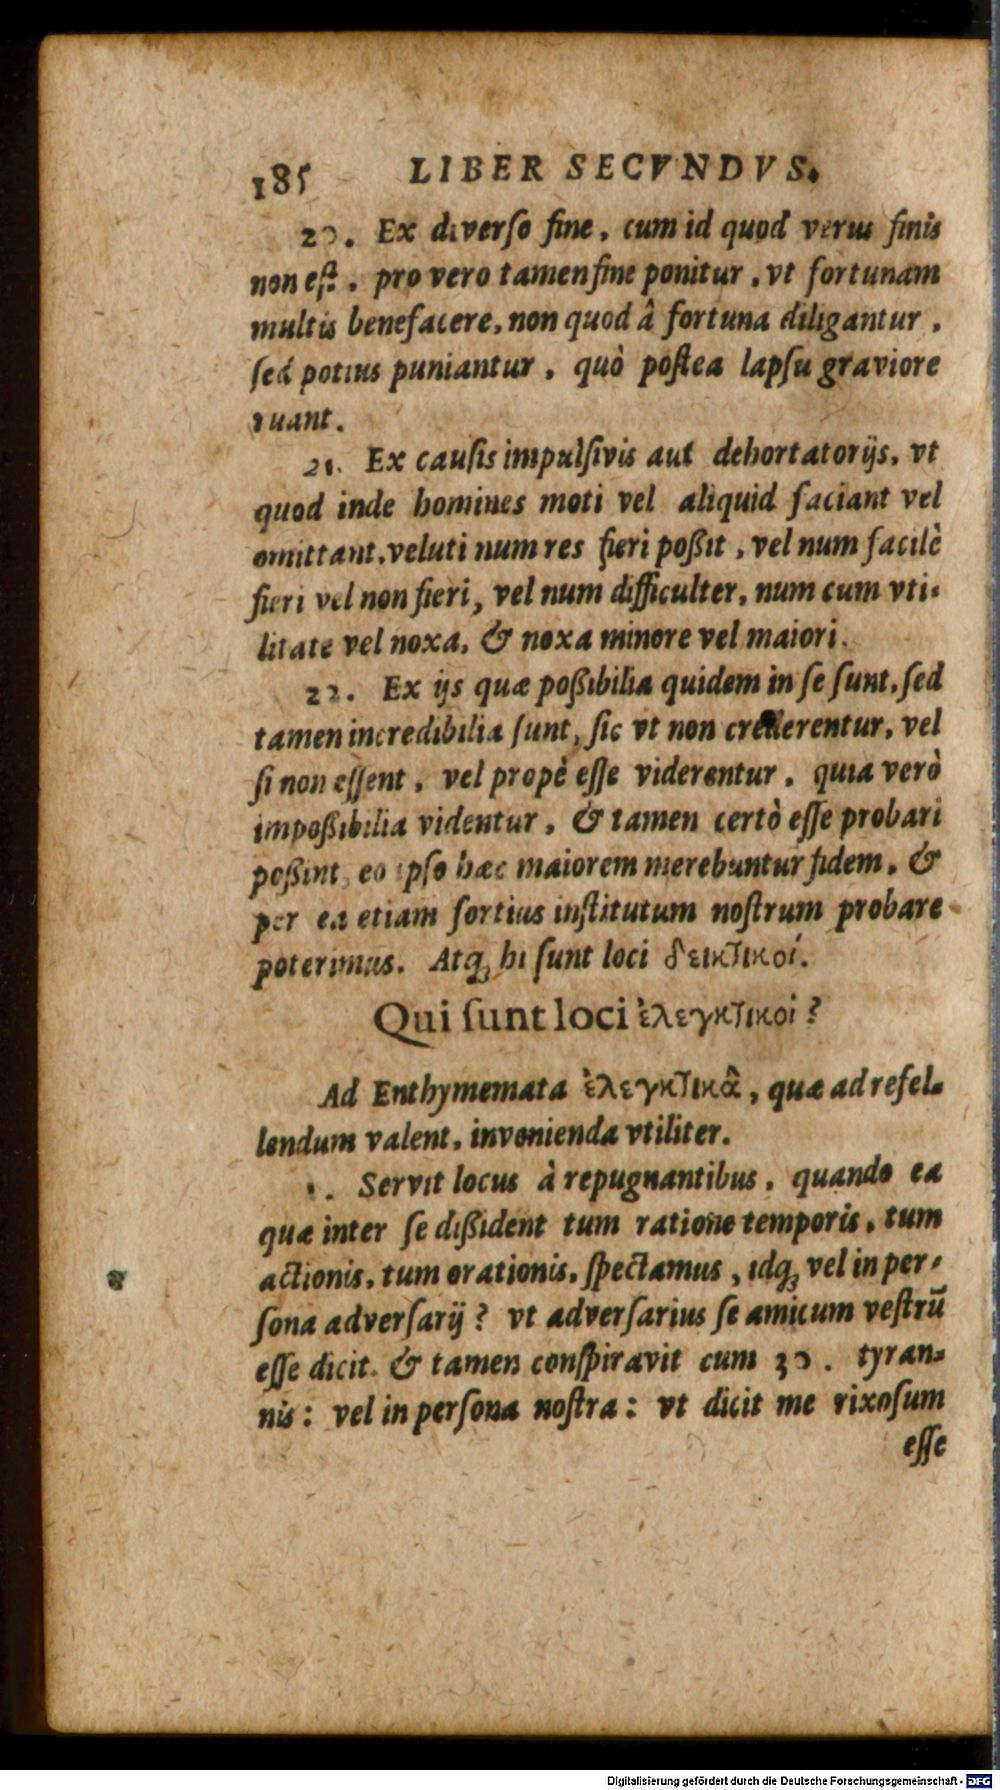 185 LIBER SECVNDVS.
20. Ex diverso fine, cum id quod verus finis
non est, pro vero tamen fine ponitur, vt fortunam
multis benefacere, non quod â fortuna diligantur,
sed potius puniantur, quò postea lapsu graviore
ruant.
21. Ex causis impulsivis aut dehortatorijs, vt
quod inde homines moti vel aliquid faciant vel
omittant, veluti num res fieri poßit, vel num facilè
fieri vel non fieri, vel num difficulter, num cum vti-
litate vel noxa, & noxa minore vel maiori.
22. Ex ijs quæ poßibilia quidem in se sunt, sed
tamen incredibilia sunt, sic vt non crederentur, vel
si non essent, vel propè esse viderentur. quia verò
impoßibilia videntur, & tamen certò esse probari
poßint, eo ipso hæc maiorem merebuntur fidem, &
per ea etiam fortius institutum nostrum probare
poterimus. Atq; hi sunt loci δεικτικοί.
Qui sunt loci ἐλεγκτικοί?
Ad Enthymemata ἐλεγκτικᾶ, quæ ad refel-
lendum valent, invenienda vtiliter.
1. Servit locus à repugnantibus, quando ea
quæ inter se dißident tum ratione temporis, tum
actionis, tum orationis, spectamus, idq; vel in per-
sona adversarij? vt adversarius se amicum vestrū
esse dicit. & tamen conspiravit cum 30. tyran-
nis: vel in persona nostra: vt dicit me rixosum
esse
Digitalisierung gefördert durch die Deutsche Forschungsgemeinschaft - DFG